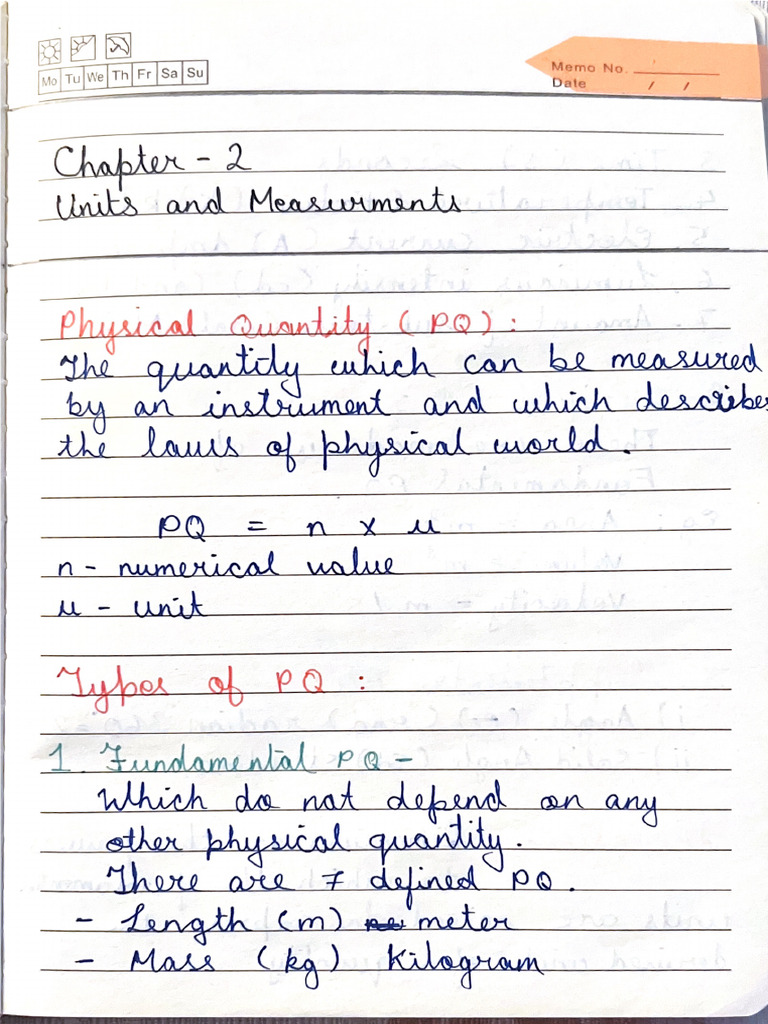 Mo Tu We Th Fr Sa Su
Memo No.
Date / /
Chapter - 2
Units and Measurments
Physical Quantity (PQ) :
The quantity which can be measured
by an instrument and which describes
the laws of physical world.
PQ = n x u
n - numerical value
u - unit
Types of PQ :
1. Fundamental PQ -
Which do not depend on any
other physical quantity.
There are 7 defined PQ.
- Length (m) meter
- Mass (kg) Kilogram